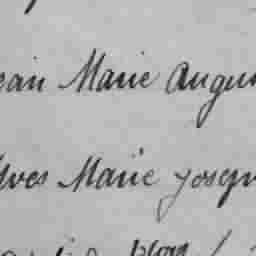 ean Marie Augus
Yves Marie Joseph